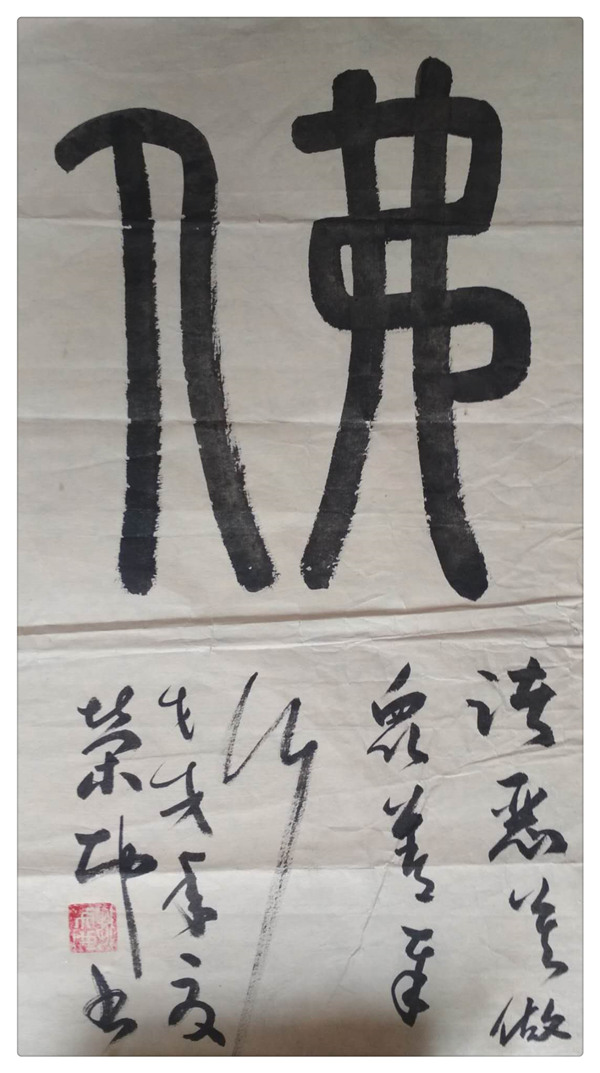 佛
诸恶莫做
眾善奉
行
戊戌年夏
荣坤书